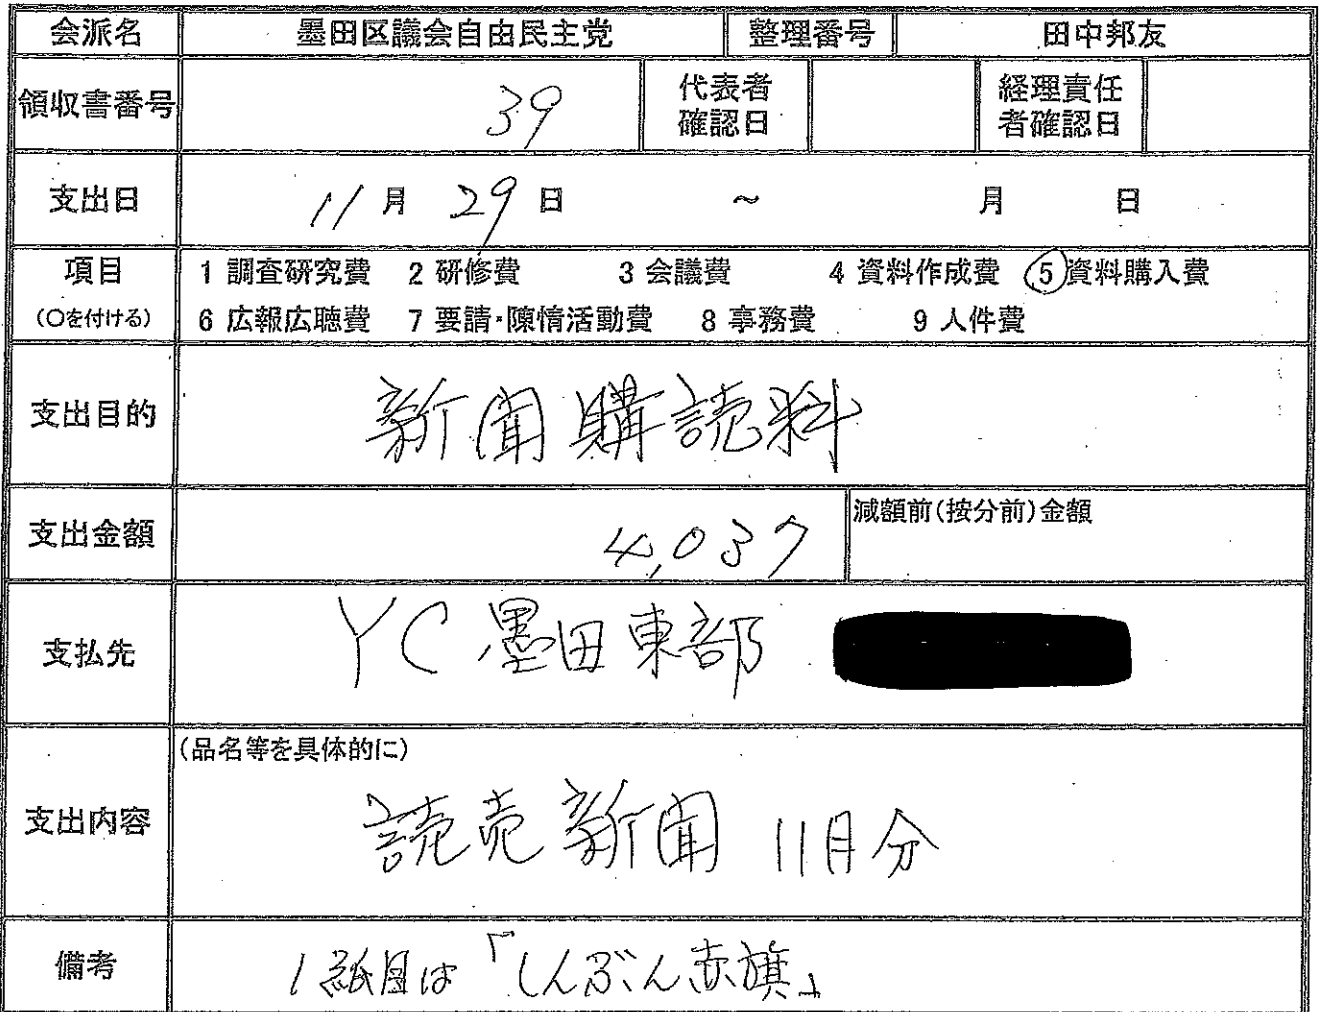 会派名 墨田区議会自由民主党 整理番号 田中邦友
領収書番号 39 代表者確認日 経理責任者確認日
支出日 11月 29日 ～ 月 日
項目 1 調査研究費 2 研修費 3 会議費 4 資料作成費 5 資料購入費
(○を付ける) 6 広報広聴費 7 要請・陳情活動費 8 事務費 9 人件費
支出目的 新聞購読料
支出金額 4,037 減額前(按分前)金額
支払先 YC 墨田東部
(品名等を具体的に)
支出内容 読売新聞 11月分
備考 1紙目は「しんぶん赤旗」